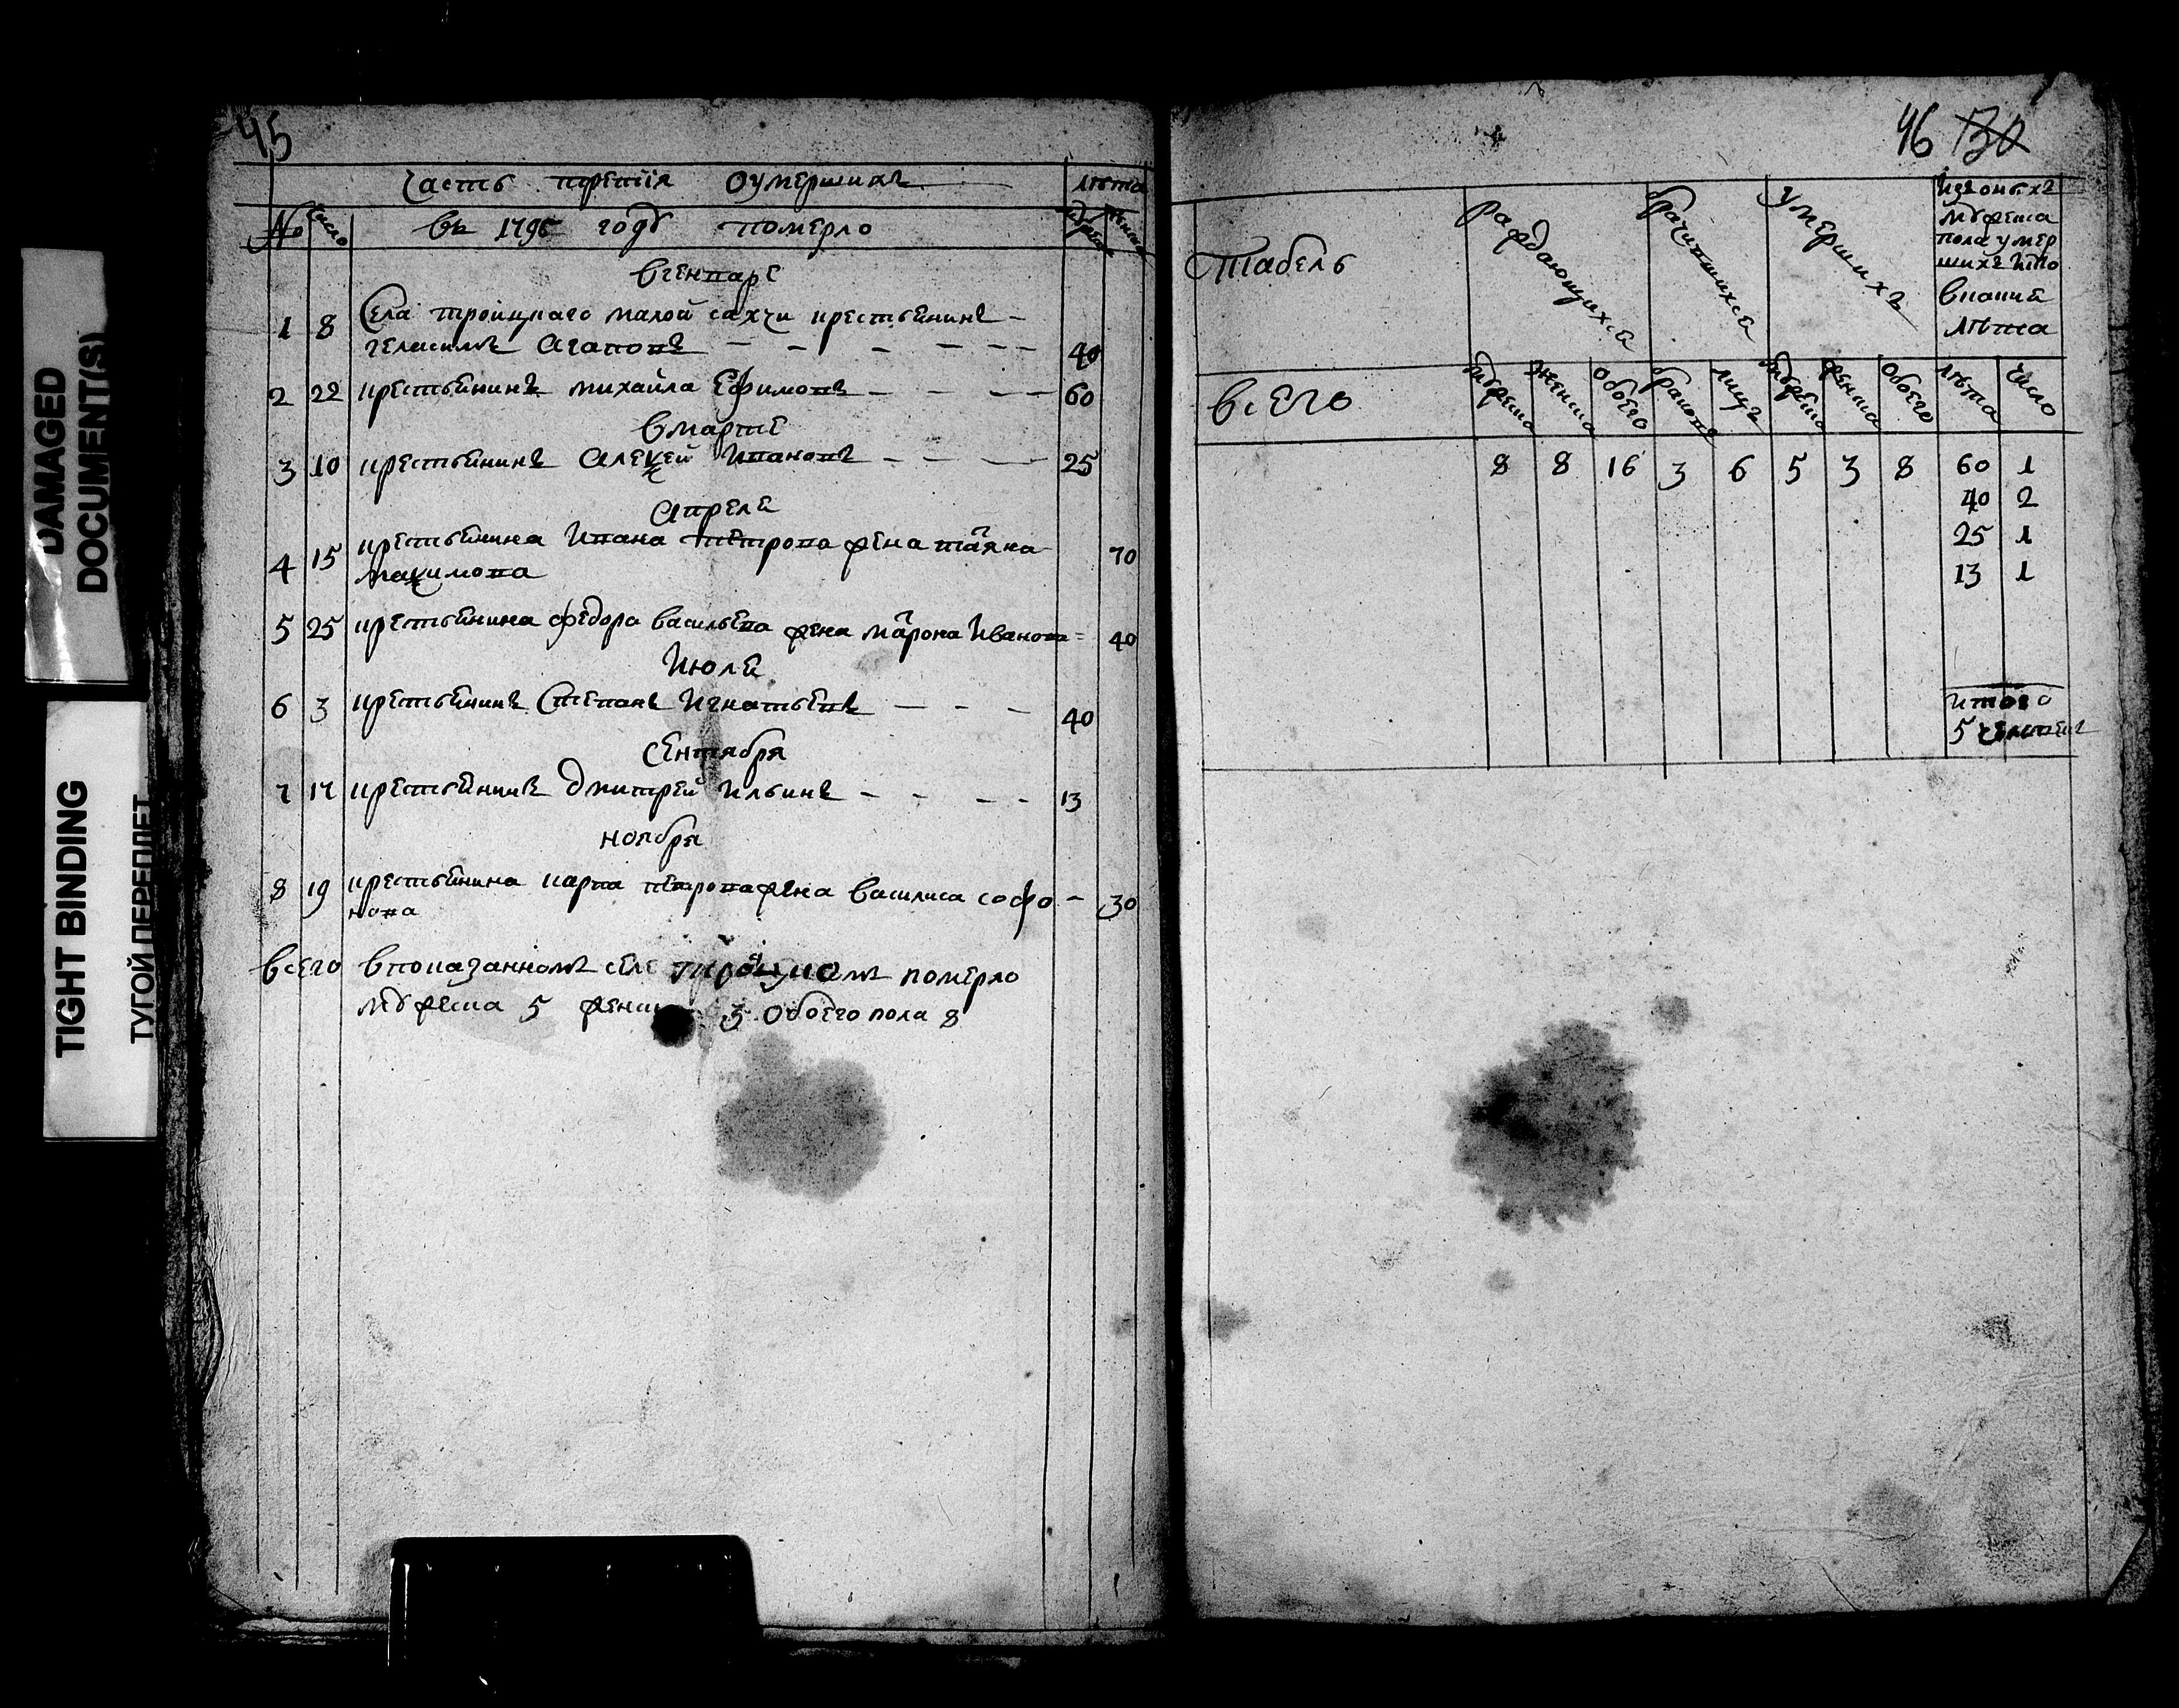 DAMAGED
DOCUMENT(S)
TIGHT BINDING
ТУГОЙ ПЕРЕПЛЕТ
45
Часть третія оумершихъ лѣта
№ число въ 1795 году померло мужеска женска
в генваре
1 8 Села троицкаго малой сахчи крестьянинъ
геласимъ Агаповъ 40
2 22 крестьянинъ михайла Ефимовъ 60
в марте
3 10 крестьянинъ Алеѯей Ивановъ 25
Апреля
4 15 крестьянина Ивана петрова жена татяна 70
маѯимова
5 25 крестьянина федора васильева жена матрона Иванова 40
Июля
6 3 крестьянинъ Степанъ Игнатьевъ 40
Сентября
7 17 крестьянинъ дмитрей Ильинъ 13
ноября
8 19 крестьянина карпа петрова жена василиса софро 30
нова
всего в показанномъ селе троицкомъ померло
мужеска 5 женска 3 обоего пола 8
46 130
табель
раждающихся
бракомъ
умершихъ
изъ оныхъ
мужеска
пола умер
шихъ кто
в какия
лѣта
всего мужеска женска обоего браковъ лицъ мужеска женска обоего лѣта число
8 8 16 3 6 5 3 8 60 1
40 2
25 1
13 1
итого
5